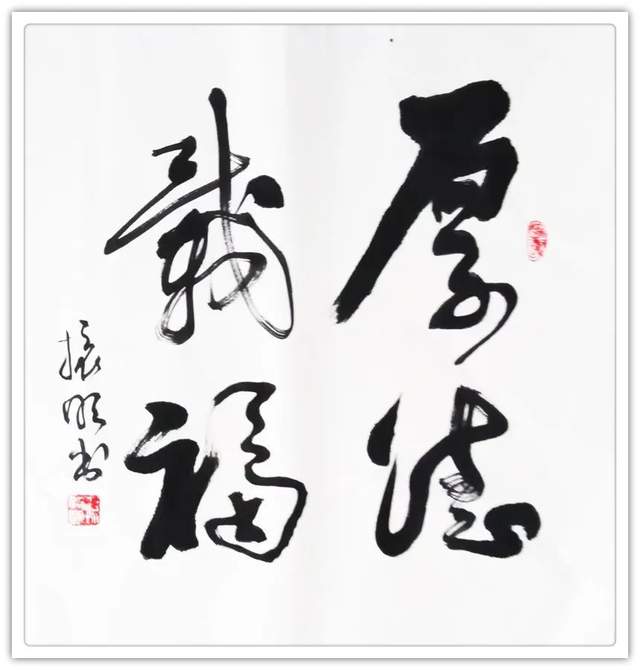 厚德
载福
振明书